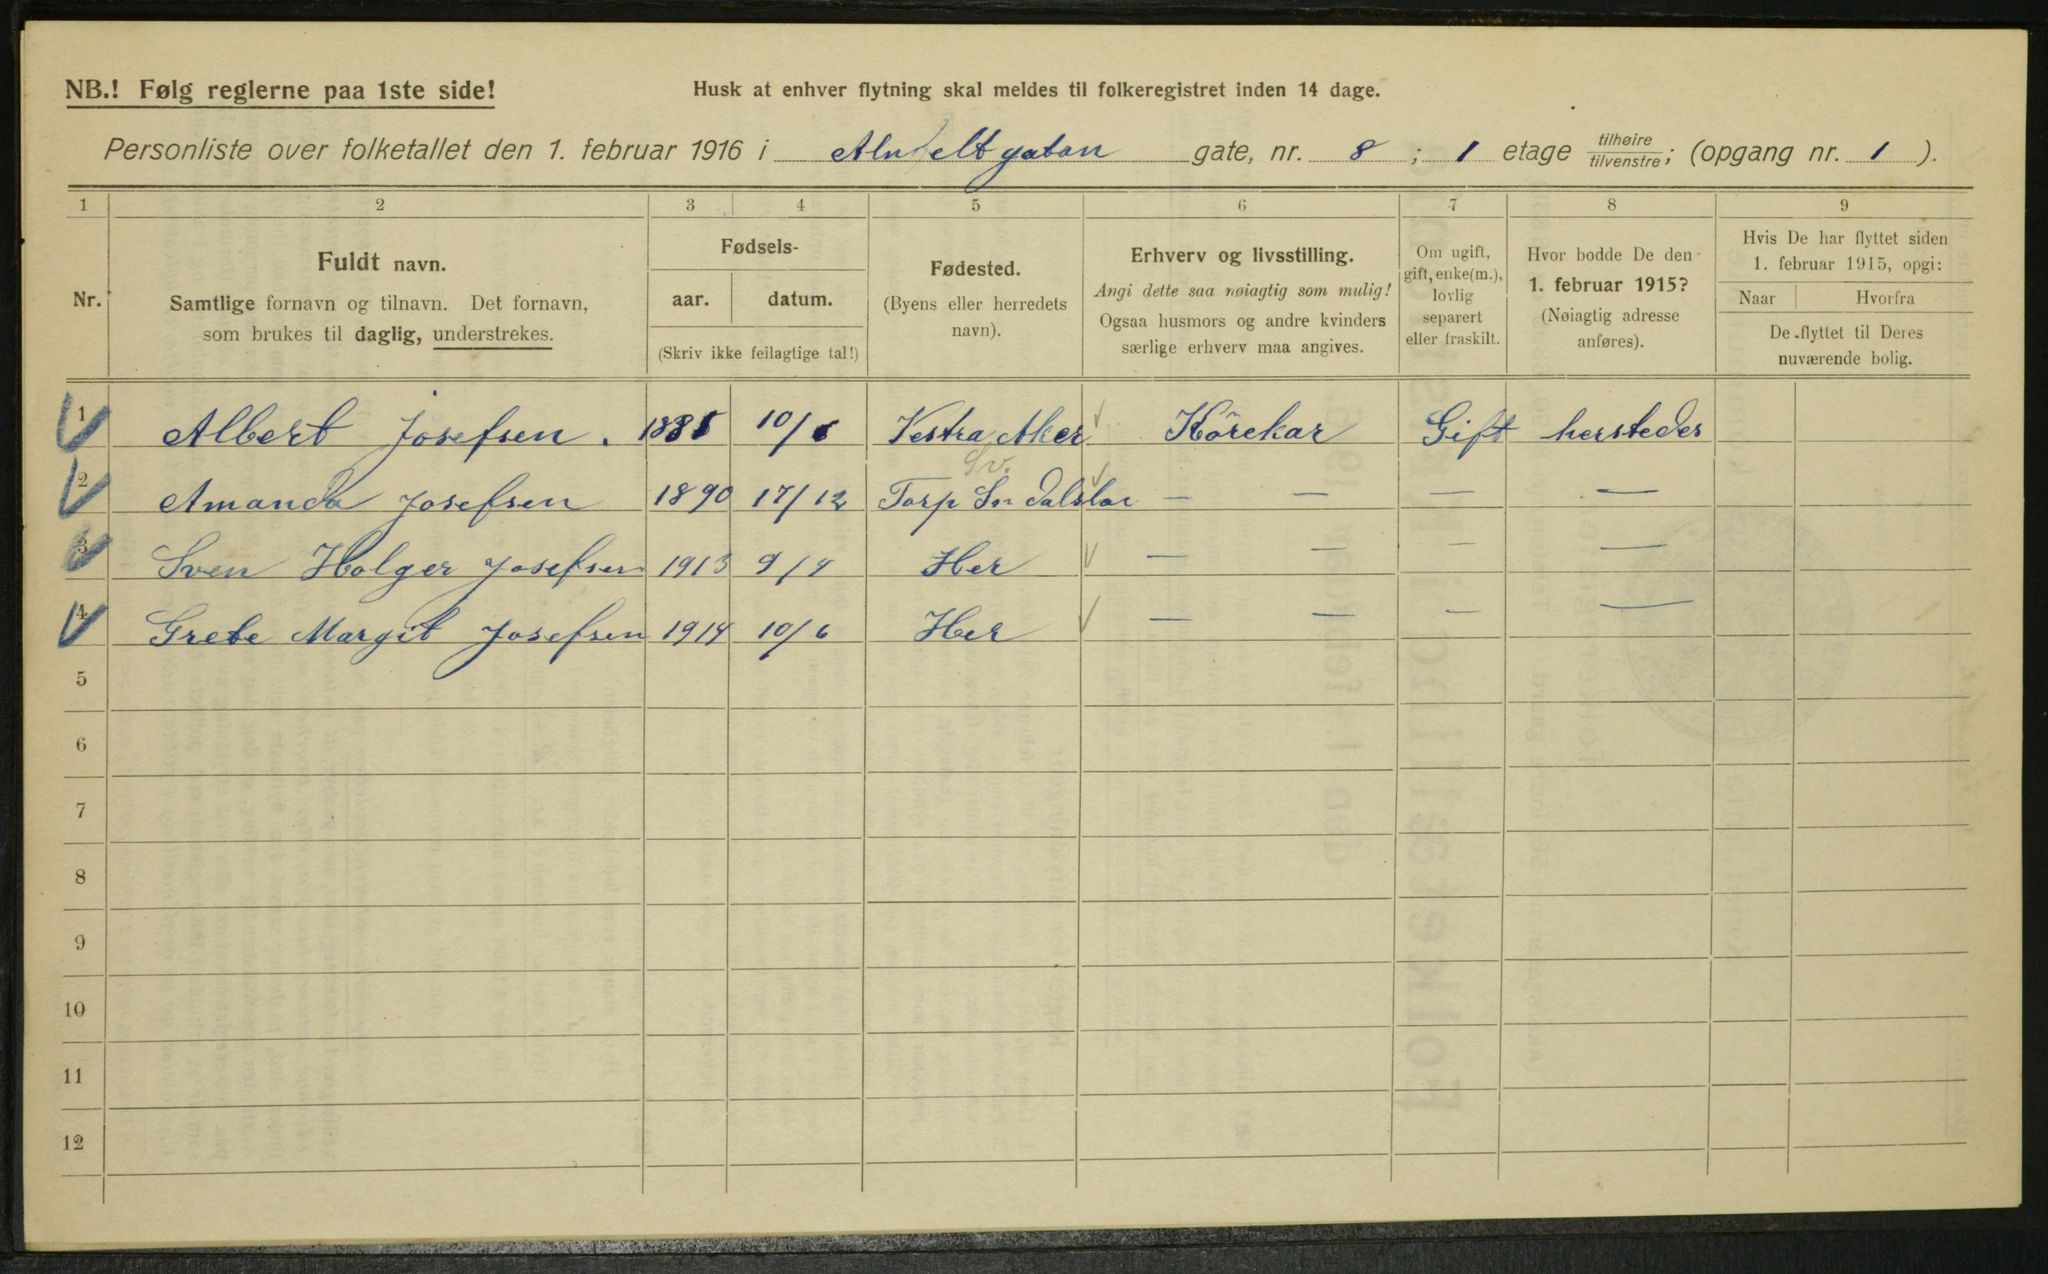 NB.! Følg reglerne paa 1ste side!
Husk at enhver flytning skal meldes til folkeregistret inden 14 dage.
Personliste over folketallet den 1. februar 1916 i gatan gate, nr. 8; 1 etage tilhøire/tilvenstre; (opgang nr. 1).
1 2 3 4 5 6 7 8 9
Nr.
Fuldt navn.
Samtlige fornavn og tilnavn. Det fornavn,
som brukes til daglig, understrekes.
Fødsels-
aar. datum.
(Skriv ikke feilagtige tal!)
Fødested.
(Byens eller herredets
navn).
Erhverv og livsstilling.
Angi dette saa nøiagtig som mulig!
Ogsaa husmors og andre kvinders
særlige erhverv maa angives.
Om ugift,
gift, enke(m.),
lovlig
separert
eller fraskilt.
Hvor bodde De den
1. februar 1915?
(Nøiagtig adresse
anføres).
Hvis De har flyttet siden
1. februar 1915, opgi:
Naar Hvorfra
De flyttet til Deres
nuværende bolig.
1 Albert Josefsen. 10/6 Vestra Aker Körekar Gift herstedes
Sv.
2 Amanda Josefsen 1890 17/12 Torp Sn Dalslan — — — —
3 Sven Holger Josefsen 1913 9/4 Her — — — —
4 Grete Margit Josefsen 1914 10/6 Her — — — —
5
6
7
8
9
10
11
12